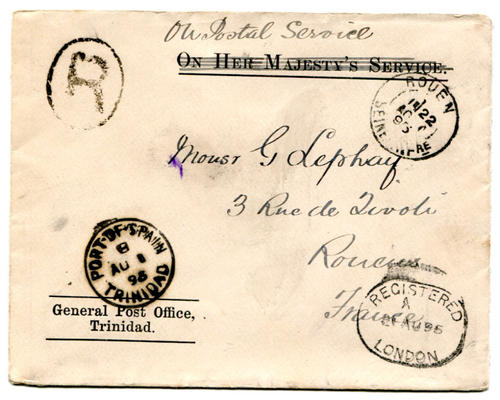 On Postal Service
ON HER MAJESTY'S SERVICE.
R
ROUEN
22
95
SEINE INFRE
Monsr G Lephay
3 Rue de Tivoli
Rouen
France
PORT-OF-SPAIN
B
AU 1
95
TRINIDAD
General Post Office,
Trinidad.
REGISTERED
A
21 AU 95
LONDON